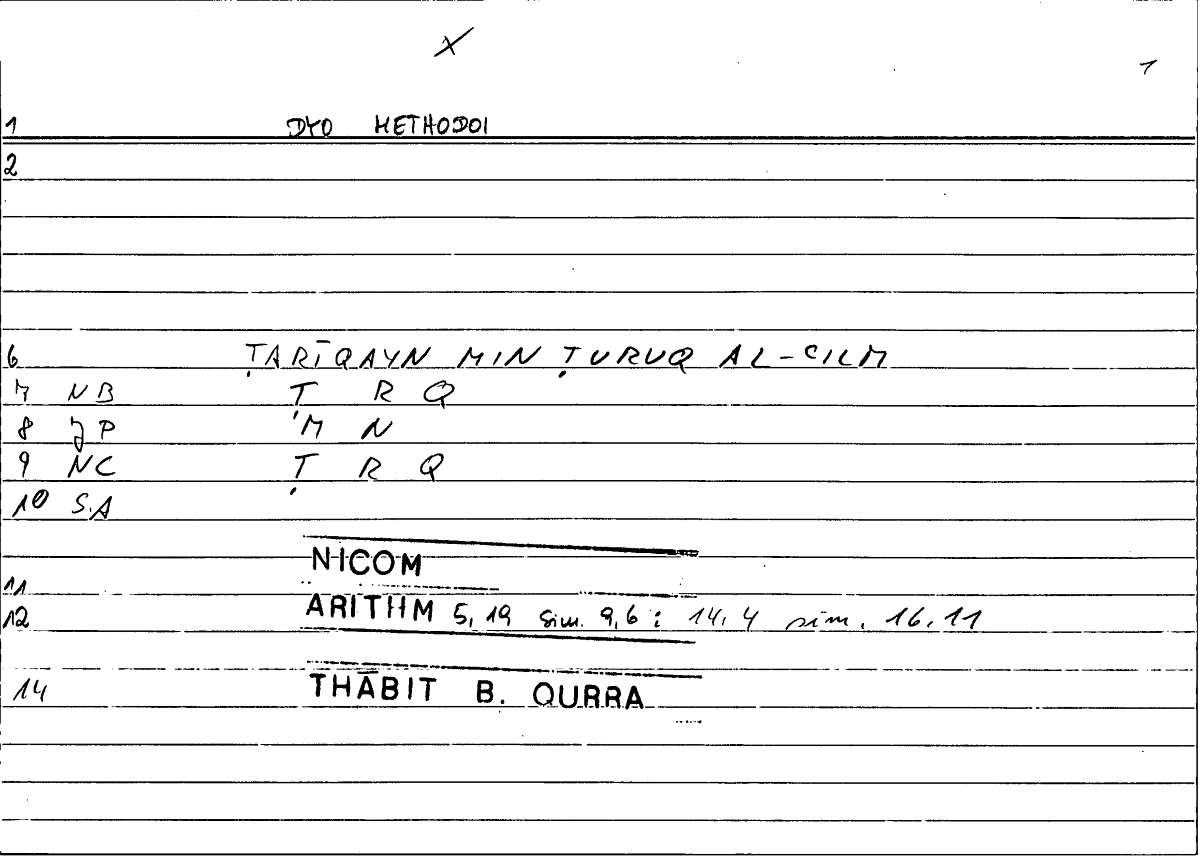 X
1
1 DYO METHODOI
2
6 ṬARĪQAYN MIN ṬURUQ AL-CILM
7 NB Ṭ R Q
8 JP 'M N
9 NC Ṭ R Q
10 S.A
NICOM
11
12 ARITHM 5,19 sim. 9,6 : 14,4 sim. 16,11
14 THĀBIT B. QURRA